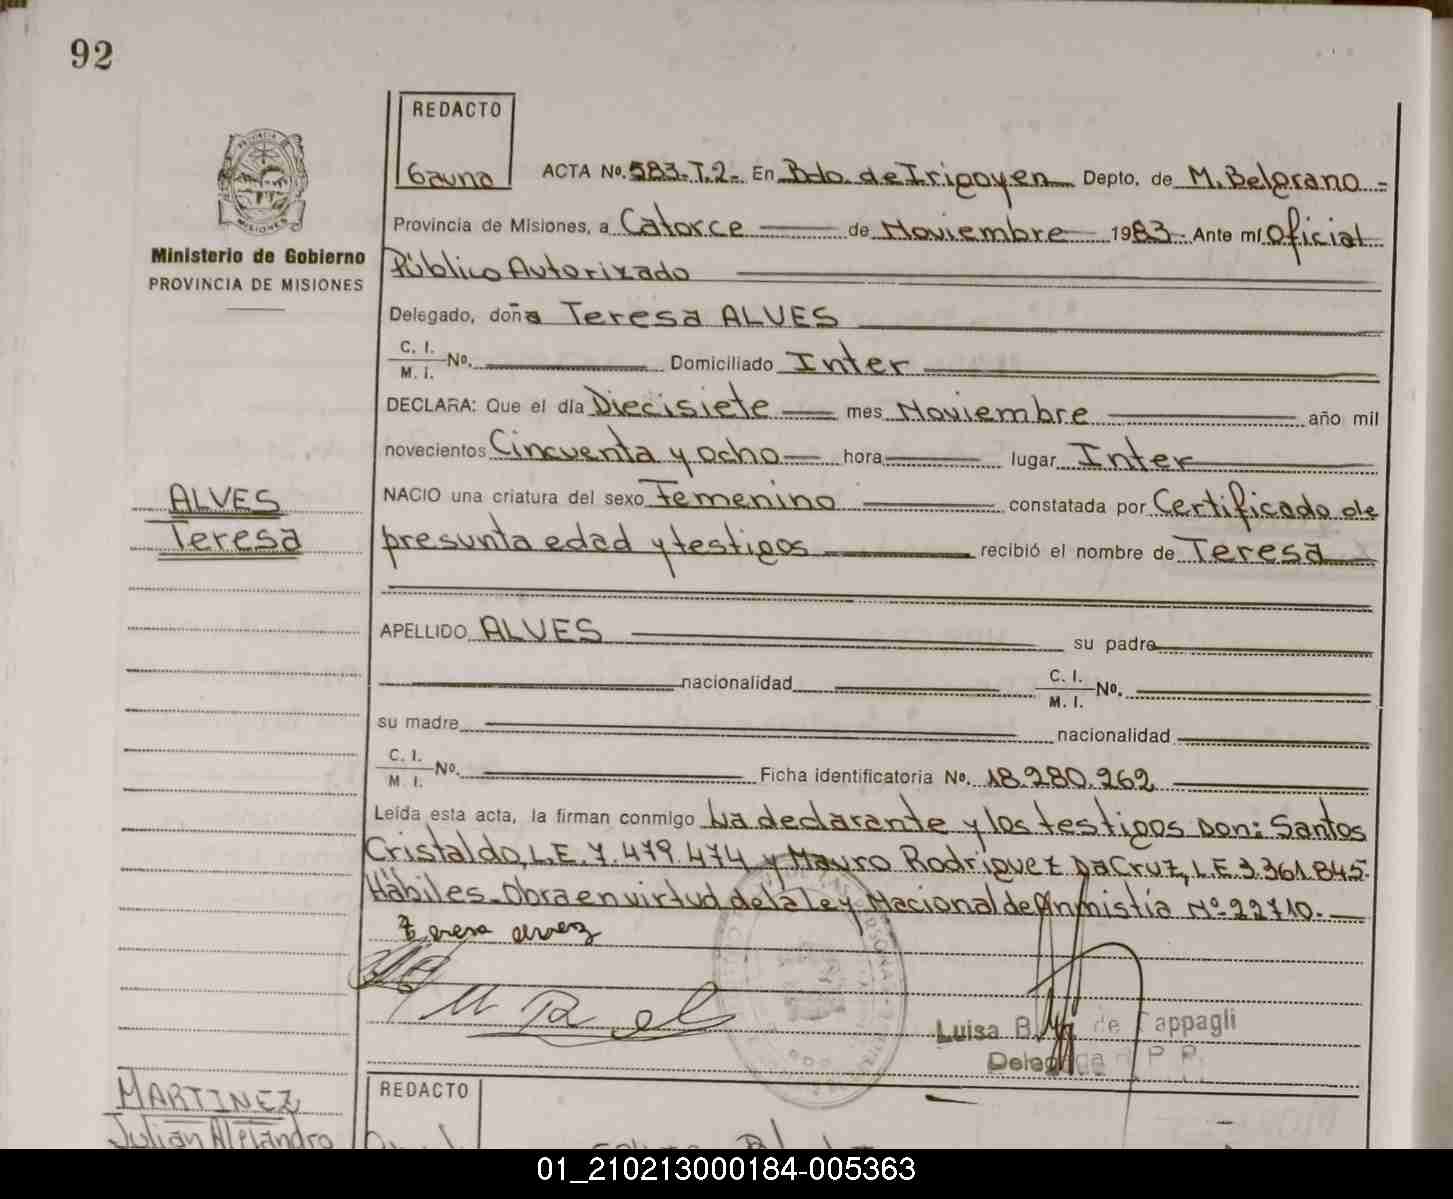 92
REDACTO
Gauna
ACTA Nº. 583-T.2- En Bdo. de Irigoyen Depto. de M. Belgrano.-
Provincia de Misiones, a Catorce de Noviembre 1983. Ante mí Oficial
Ministerio de Gobierno
PROVINCIA DE MISIONES
Público Autorizado
Delegado, doña Teresa ALVES
C. I.
M. I. Nº. Domiciliado Inter
DECLARA: Que el día Diecisiete mes Noviembre año mil
novecientos Cincuenta y ocho hora lugar Inter
ALVES
Teresa
NACIO una criatura del sexo Femenino constatada por Certificado de
presunta edad y testigos recibió el nombre de Teresa
APELLIDO ALVES su padre
nacionalidad C. I.
M. I. Nº.
su madre nacionalidad
C. I.
M. I. Nº. Ficha identificatoria Nº. 18.280.262
Leída esta acta, la firman conmigo La declarante y los testigos Don: Santos
Cristaldo, L.E. 7.479.474 y Mauro Rodriguez DaCruz, L.E. 3.361.845.
Hábiles. Obra en virtud de la ley Nacional de Anmistía Nº 22710.
Luisa B. de Tappagli
Delegada R. P. P.
MARTINEZ
Julián Alejandro
REDACTO
01_210213000184-005363